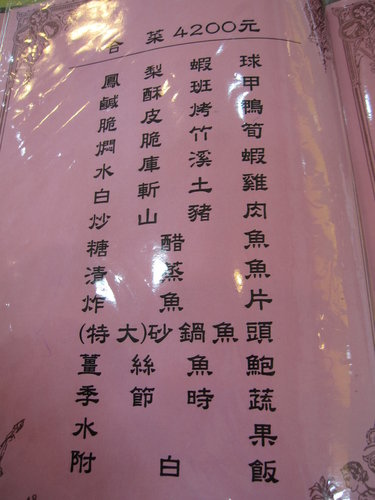 合菜4200元
鳳梨蝦球
鹹酥班甲
脆皮烤鴨
燜脆竹筍
水庫溪蝦
白斬土雞
炒山豬肉
糖醋魚
清蒸魚
炸魚片
(特大)砂鍋魚頭
薑絲魚鮑
季節時蔬
水果
附白飯